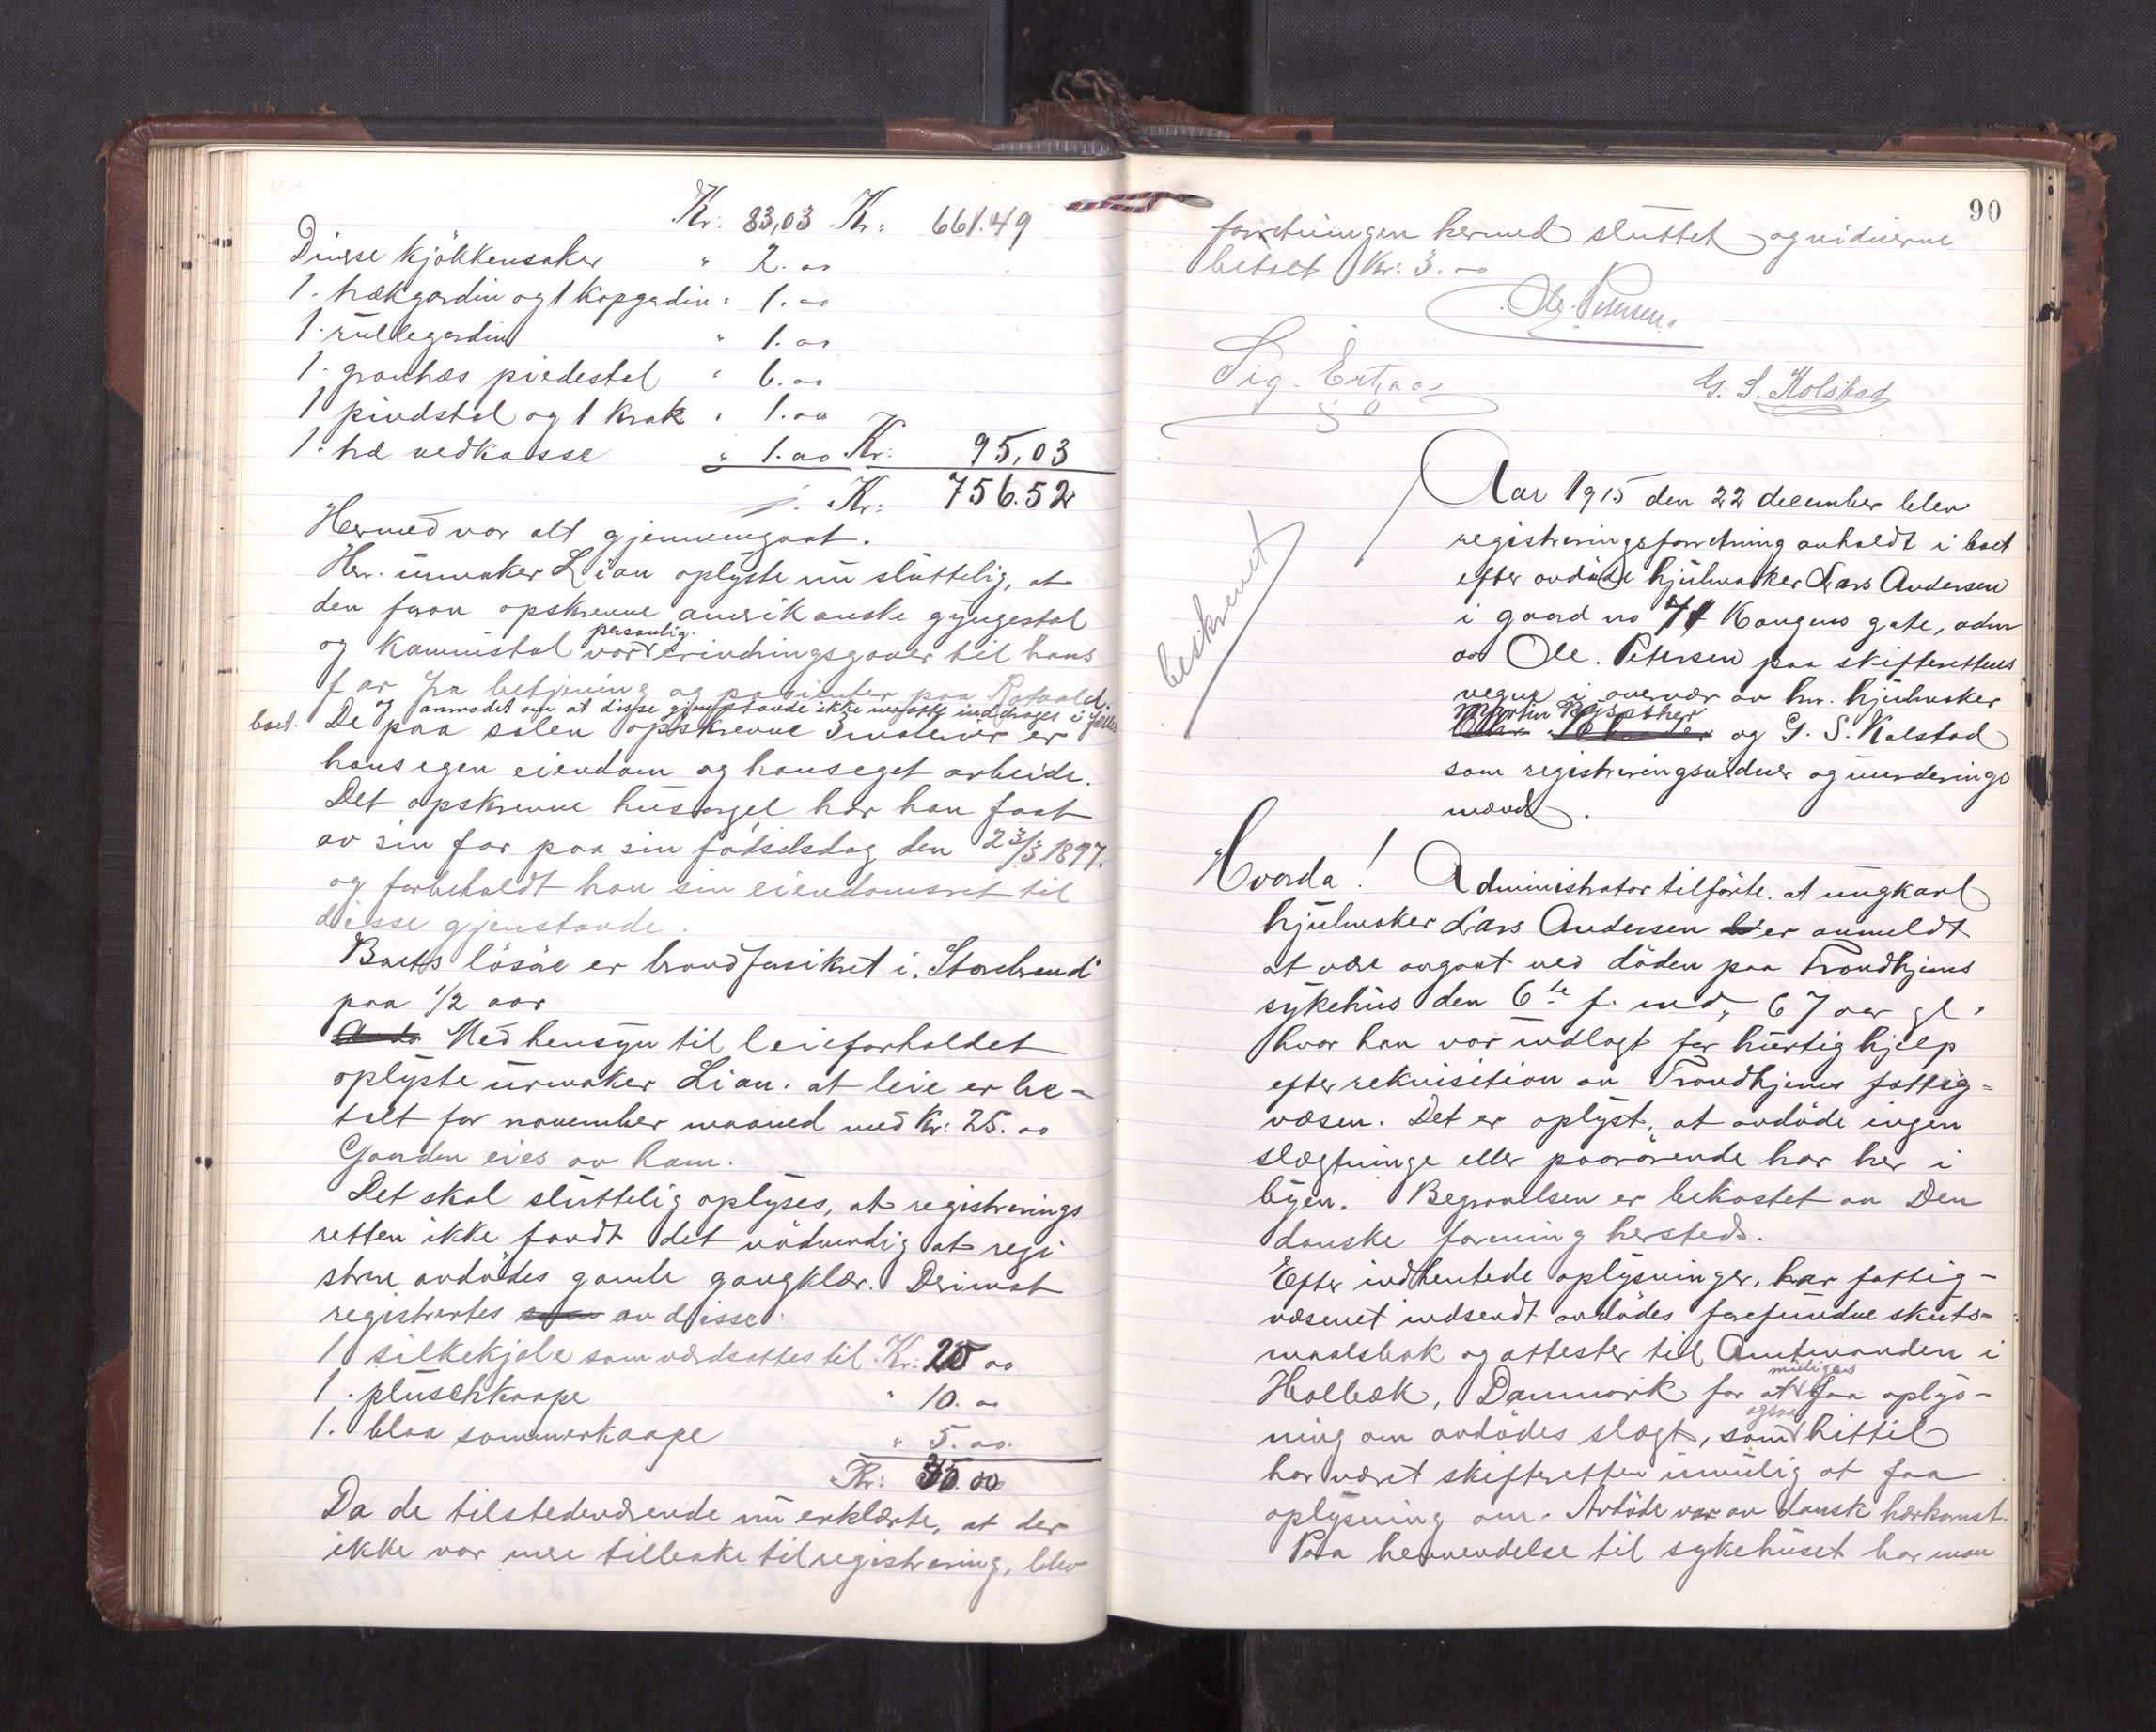 Kr. 83,03 Kr: 661.49
Diverse kjökkensaker " 2.00
1. trækgardin og 1 kapgardin " 1.00
1. rullegardin " 1.00
1. piedestal " 6.00
1 pindstol og 1 krak " 1.00
1. træ vedkasse " 1.00 Kr: 95,03
Kr: 756.52
Hermed var alt gjennemgaat.
Hr. urmaker Lian oplyste nu sluttelig, at
den foran opskrevne amerikanske gyngestol
og kaminstol var personlig erindringsgaver til hans
far fra betjening og pasienter paa Rotvold.
anmodet om at disse gjenstande ikke maatte inddrages i fælles
boet. De paa salen opskrevne 3 malerier er
hans egen eiendom og hans eget arbeide.
Det opskrevne husorgel har han faat
av sin far paa sin födselsdag den 23/3 1897.
og forbeholdt han sin eiendomsret til
disse gjenstande.
Boets lösöre er brandforsikret i "Storebrand"
paa 1/2 aar
Med hensyn til leieforholdet
oplyste urmaker Lian. at leie er be-
talt for november maaned med Kr: 25.00
Gaarden eies av ham.
Det skal sluttelig oplyses, at registrerings
retten ikke fandt det nödvendig at regi
strere avdödes gamle gangklær. Derimot
registrertes av disse:
1 silkekjole som værdsattes til Kr: 20 00
1. pluschkaape " 10.00
1. blaa sommerkaape " 5.00.
Kr: 35.00
Da de tilstedeværende nu erklærte, at der
ikke var mere tilbake til registrering, blev
90
forretningen hermed sluttet og vidnerne
betalt Kr: 3.00
Ole. Petersen.
Sig. G. S. Kolstad
beskrevet
Aar 1915 den 22 december blev
registreringsforretning avholdt i boet
efter avdöde hjulmaker Lars Andersen
i gaard no 71 Kongens gate, adm
av Ole. Petersen paa skifterettens
vegne i overvær av hr. hjulmaker
Martin
og G. S. Kolstad
som registreringsvidner og vurderings
mænd.
Hvorda! Administrator tilförte. at ungkarl
hjulmaker Lars Andersen er anmeldt
at være avgaat ved döden paa Trondhjems
sykehus den 6te f. md, 67 aar gl.
hvor han var indlagt for hurtig hjelp
efter rekvisition av Trondhjems fattig=
væsen. Det er oplyst, at avdöde ingen
slægtninge eller paarörende har her i
byen. Begravelsen er bekostet av Den
danske forening hersteds.
Efter indhentede oplysninger, har fattig-
væsenet indsendt avdödes forefundne skuts-
maalsbok og attester til Amtmanden i
Holbæk, Danmark for at muligens faa oplys-
ning om avdödes slægt, som ogsaa hittil
har været skifteretten umulig at faa
oplysning om. Avdöde var av dansk herkomst.
Paa henvendelse til sykehuset har man